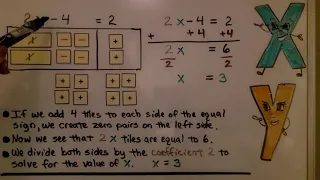 2x - 4 = 2
x
x
2x - 4 = 2
+ +4 +4
2x 6
2 2
x = 3
• If we add 4 tiles to each side of the equal
sign, we create zero pairs on the left side.
• Now we see that 2 x tiles are equal to 6.
• We divide both sides by the coefficient 2 to
solve for the value of x. x = 3
X
Y